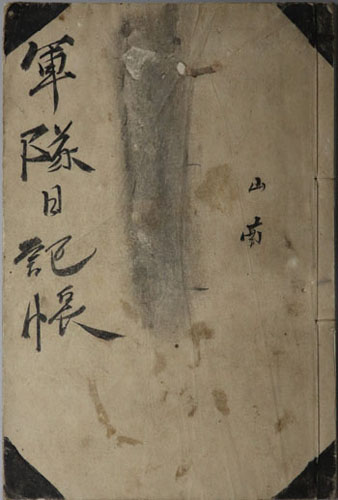 山南
軍隊日記帳